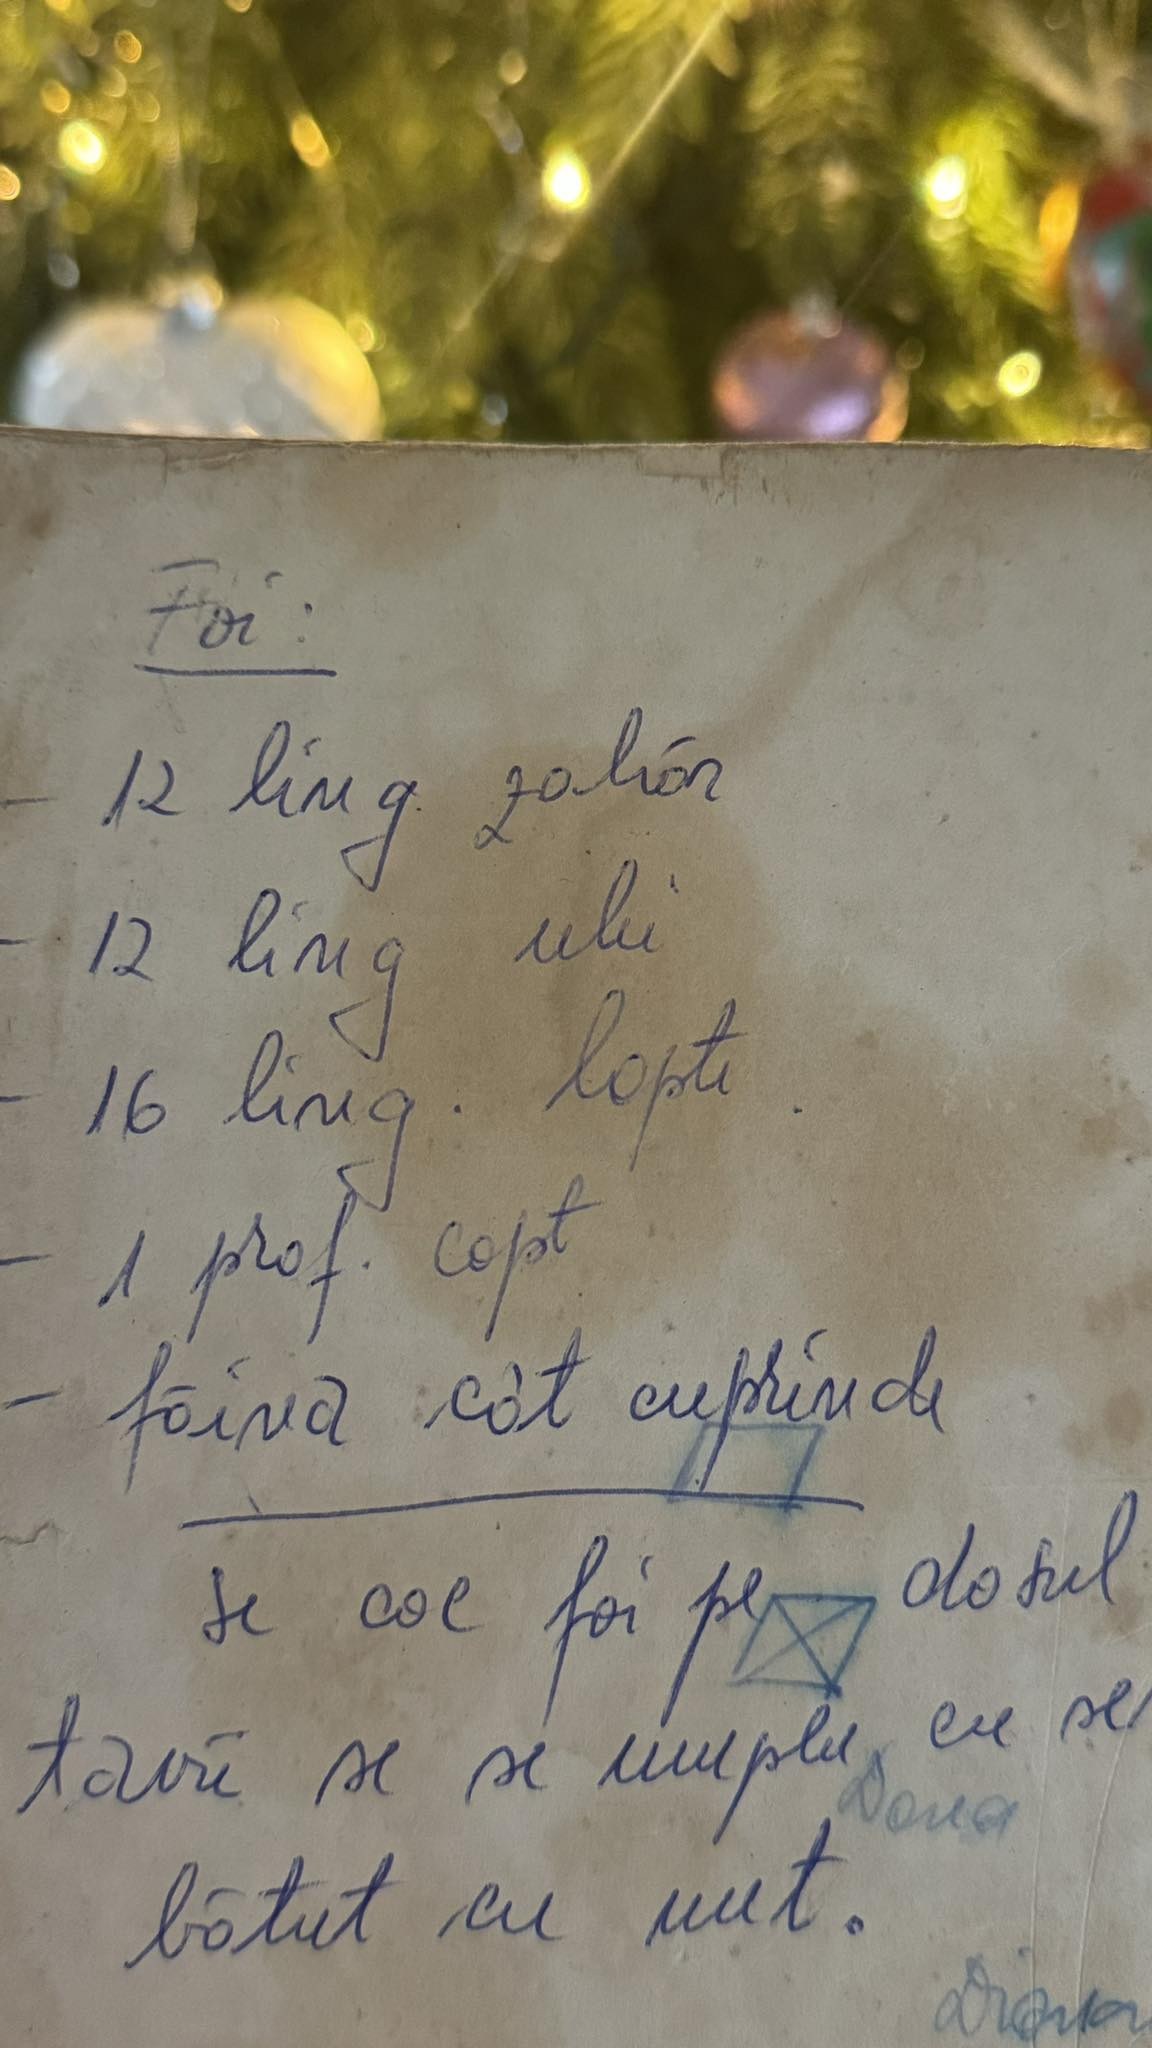 Foi:
- 12 ling. zahăr
- 12 ling ulei
- 16 ling. lapte.
- 1 praf. copt
- făină cât cuprinde
se coc foi pe dosul
tăvii se se umple cu
Dana
bătut cu unt.